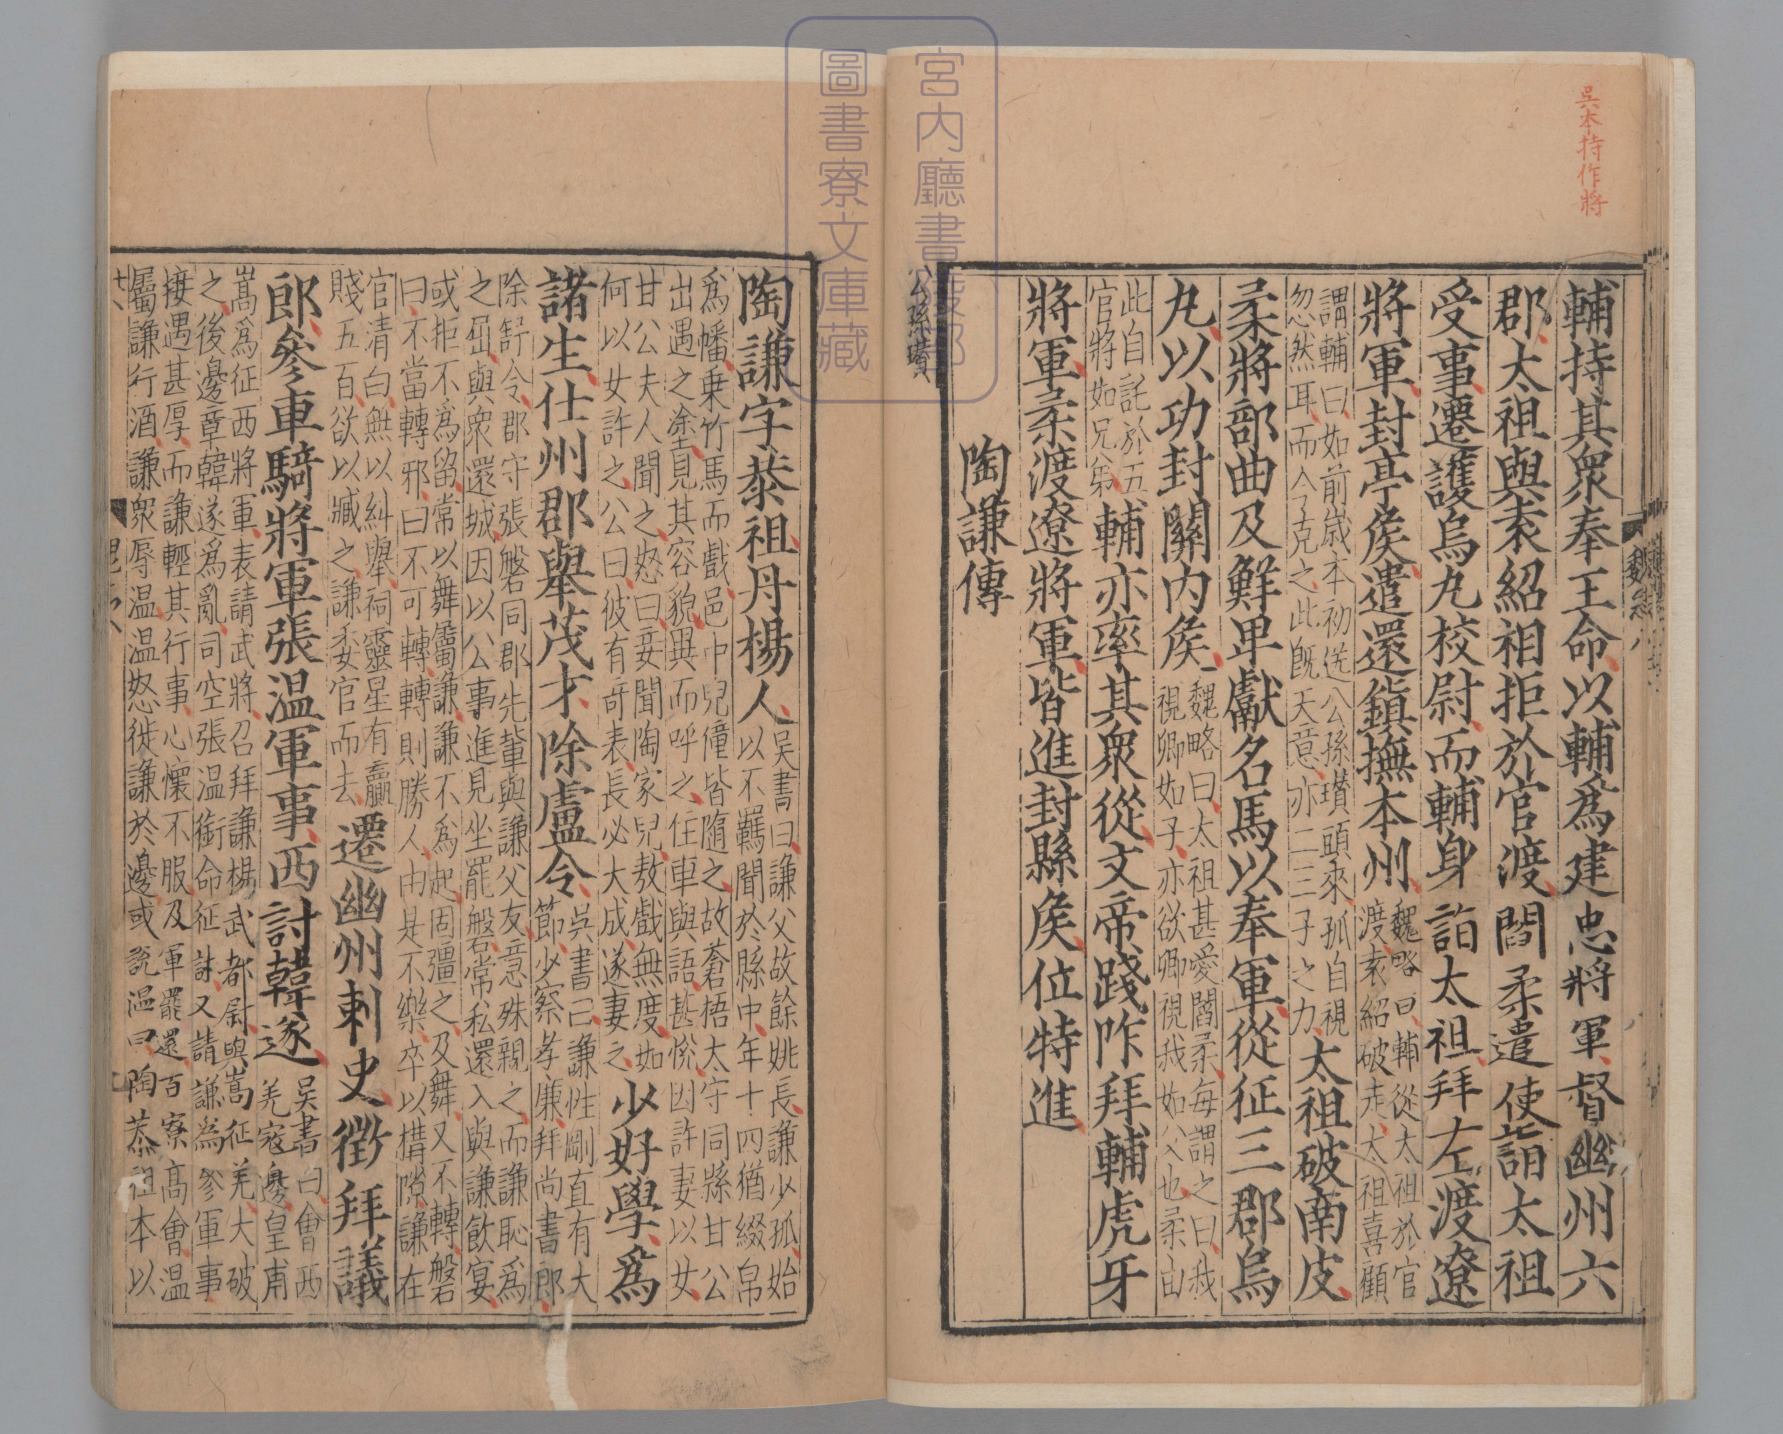 吳本持作將
輔持其衆奉王命以輔爲建忠將軍督幽州六
郡太祖與袁紹相拒於官渡閻柔遣使詣太祖
受事遷護烏丸校尉而輔身詣太祖拜左渡遼
將軍封亭侯遣還鎮撫本州魏略曰輔從太祖於官
渡袁紹破走太祖喜顧
謂輔曰如前歳本初送公孫瓚頭來孤自視
忽然耳而今克之此旣天意亦二三子之力太祖破南皮
柔將部曲及鮮卑獻名馬以奉軍從征三郡烏
丸以功封關內侯魏略曰太祖甚愛閻柔每謂之曰我
視卿如子亦欲卿視我如父也柔由
此自託於五
官將如兄弟輔亦率其衆從文帝踐阼拜輔虎牙
將軍柔渡遼將軍皆進封縣侯位特進
陶謙傳
公孫瓚
陶謙字恭祖丹楊人吳書曰謙父故餘姚長謙少孤始
以不羈聞於縣中年十四猶綴帛
爲幡乗竹馬而戲邑中兒僮皆隨之故蒼梧太守同縣甘公
出遇之塗見其容貌異而呼之住車與語甚恱因許妻以女
甘公夫人聞之怒曰妾聞陶家兒敖戲無度如
何以女許之公曰彼有奇表長必大成遂妻之少好學爲
諸生仕州郡舉茂才除盧令吳書曰謙性剛直有大
節少察孝廉拜尚書郎
除舒令郡守張磐同郡先輩與謙父友意殊親之而謙恥爲
之屈與衆還城因以公事進見坐罷磐常私還入與謙飲宴
或拒不爲留常以舞屬謙謙不爲起固彊之及舞又不轉磐
曰不當轉邪曰不可轉轉則勝人由是不樂卒以搆隙謙在
官清白無以糾舉祠靈星有贏
賤五百欲以臧之謙委官而去遷幽州刺史徵拜議
郎參車騎將軍張温軍事西討韓遂吳書曰會西
羌寇邊皇甫
嵩爲征西將軍表請武將召拜謙楊武都尉與嵩征羌大破
之後邊章韓遂爲亂司空張温銜命征討又請謙爲參軍事
接遇甚厚而謙輕其行事心懷不服及軍罷還百寮高會温
屬謙行酒謙衆辱温温怒徙謙於邊或說温曰陶恭祖本以
宮內廳書陵部
圖書寮文庫藏